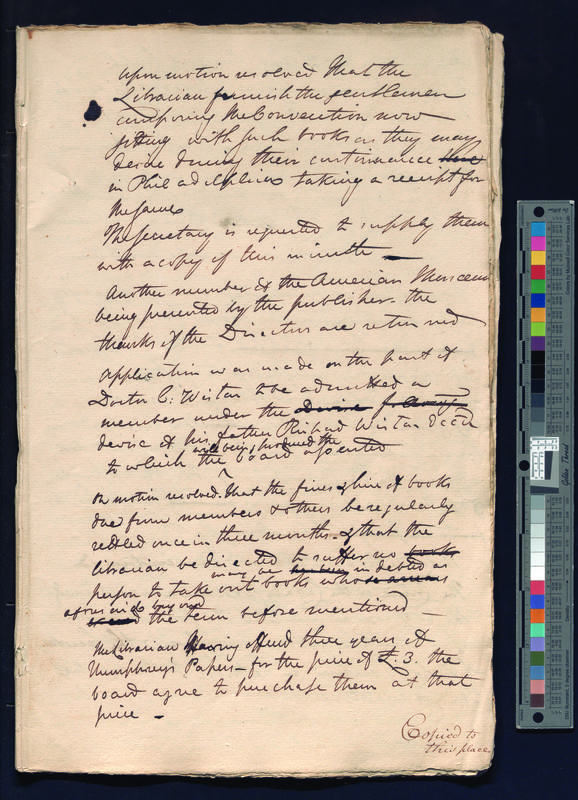 upon motion resolved that the
Librarian furnish the gentlemen
composing the Convention now
sitting with such books as they may
desire during their continuance
in Philadelphia taking a receipt for
the same
The Secretary is requested to supply them
with a copy of this minute —
Another number of the American Museum
being presented by the publisher the
thanks of the Directors are returned
Application was made on the part of
Doctor C: Wistar to be admitted a
member under the
devise of his father Richard Wistar Decd
will being produced the
to which the board assented
On motion resolved. That the fines & hire of books
due from members & others be regularly
settled once in three months - & that the
librarian be directed to suffer no books
person to take out books who may be in debted as
aforesaid beyond
the term before mentioned —
The Librarian Having offered three years of
Humphrey's Papers - for the price of £.3. the
board agree to purchase them at that
price -
Copied to
this place